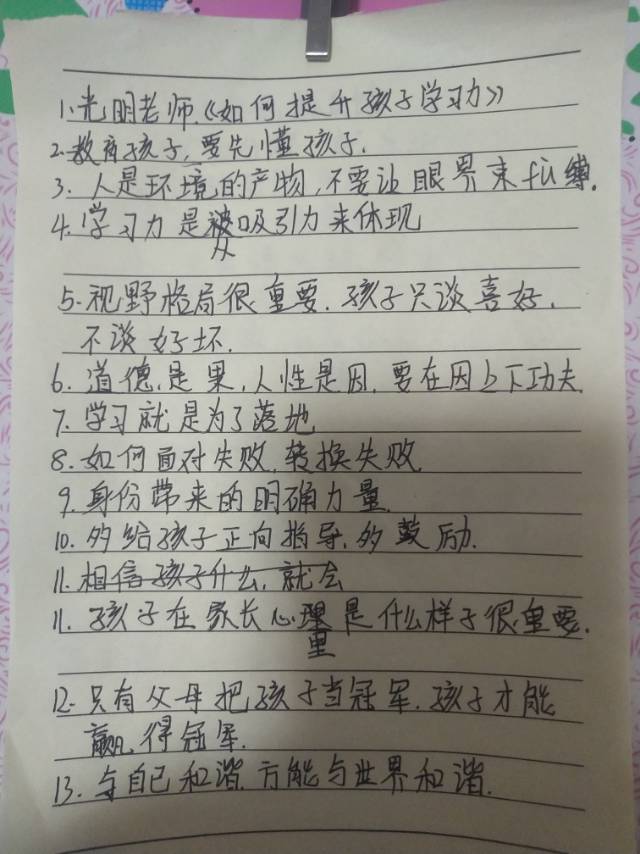 1.光明老师《如何提升孩子学习力》
2.教育孩子,要先懂孩子.
3.人是环境的产物,不要让眼界束fù缚.
4.学习力是被吸引力来体现
从
5.视野格局很重要.孩子只谈喜好.
不谈好坏.
6.道德是果,人性是因.要在因上下功夫.
7.学习就是为了落地
8.如何面对失败.转换失败.
9.身份带来的明确力量.
10.多给孩子正向指导.多鼓励.
11.相信孩子什么,就会
11.孩子在家长心理是什么样子很重要.
里
12.只有父母把孩子当冠军.孩子才能
赢得冠军.
13.与自己和谐.方能与世界和谐.